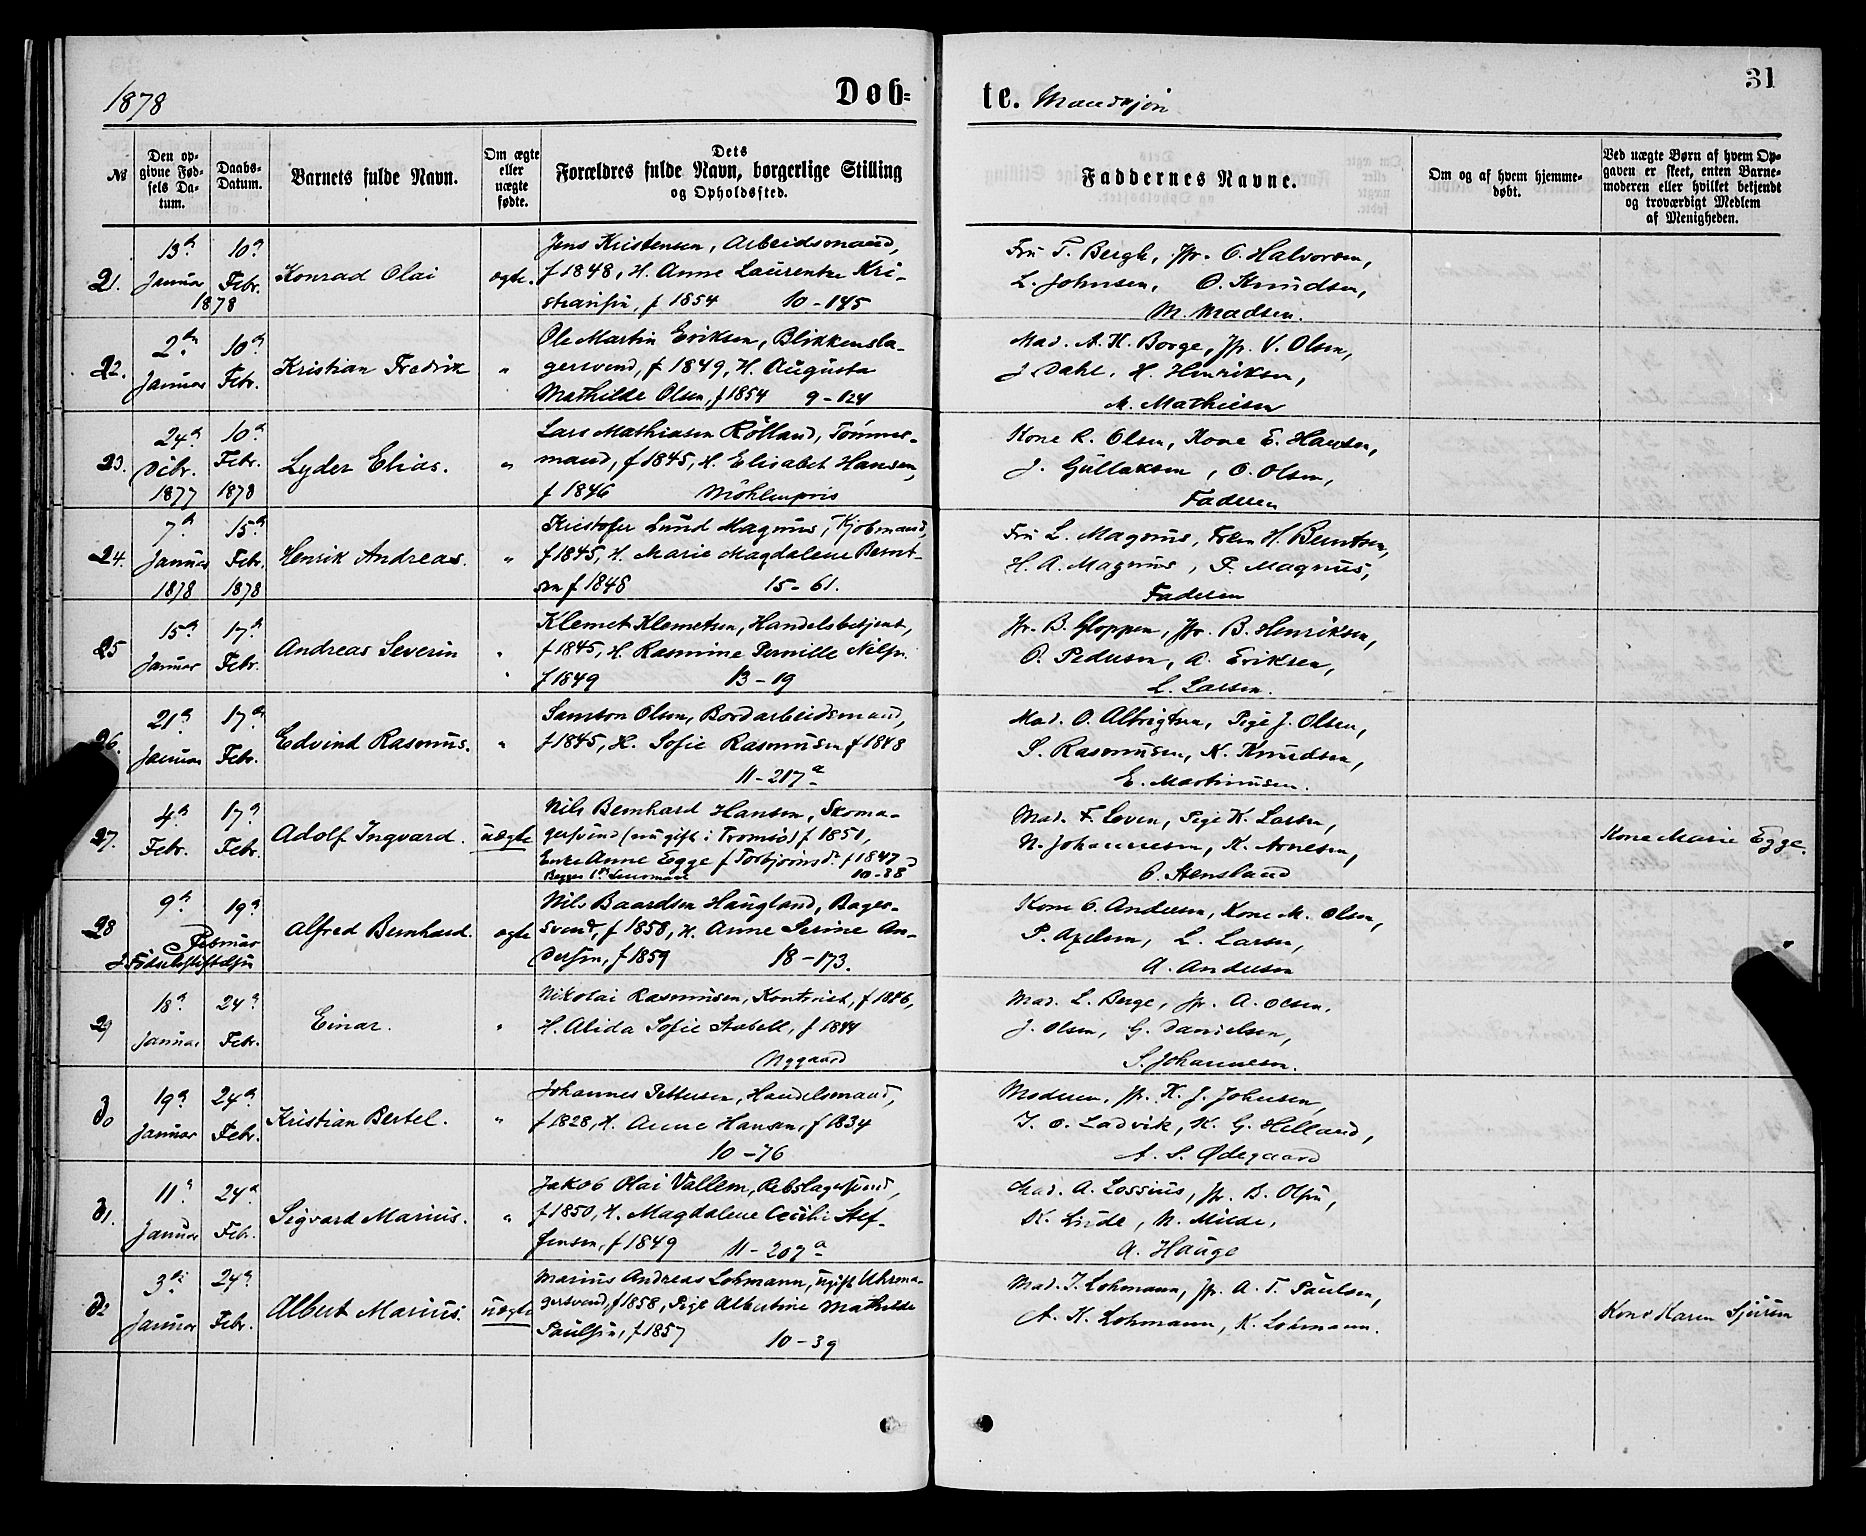 1878
Døb=
te. Mandkjøn
31
№
Den op-
givne Fød-
sels Da-
tum.
Daabs-
Datum.
Barnets fulde Navn.
Om ægte
eller
uægte
fødte.
Dets
Forældres fulde Navn, borgerlige Stilling
og Opholdssted.
Faddernes Navne.
Om og af hvem hjemme-
døbt.
Ved uægte Børn af hvem Op-
gaven er skeet, enten Barne-
moderen eller hvilket bekjendt
og troværdigt Medlem
af Menigheden.
21.
13de
Januar
10de
Febr.
1878
Konrad Olai
ægte.
Jens Kristensen, Arbeidsmand,
f 1848, H. Anne Laurentze Kri-
stensen, f 1854 10-145
Fru T. Bergh, Jfr. O. Halvorsen,
L. Johnsen, O. Knudsen,
M. Madsen.
22.
2den
Januar
10de
Febr.
Kristian Fredrik
"
Ole Martin Eriksen, Blikkensla-
gersvend, f 1849, H. Augusta
Mathilde Olsen, f 1854 9-124
Mad. A. K. Borge, Jfr. V. Olsen,
J. Dahl, H. Henriksen,
M. Mathiesen
23.
24de
Dcbr.
1877
10de
Febr.
1878
Lyder Elias.
"
Lars Mathiasen Rölland, Tömmer-
mand, f 1845, H. Elisabet Hansen,
f 1846 Möhlenpris
Kone R. Olsen, Kone E. Hansen,
J. Gullaksen, O. Olsen,
Faderen
24.
7de
Januar
1878
15de
Febr.
1878
Henrik Andreas.
"
Kristofer Lund Magnus, Kjøbmand,
f 1845, H. Marie Magdalene Bernt-
sen f 1848 15-61.
Fru L. Magnus, Frken H. Berntsen,
H. A. Magnus, P. Magnus,
Faderen
25
15de
Januar
17de
Febr.
Andreas Severin
"
Klemet Klemetsen, Handelsbetjent,
f 1845, H. Rasmine Pernille Nilsen
f 1849 13-19
Jfr. B. Gloppen, Jfr. B. Henriksen,
O. Pedersen, A. Eriksen,
L. Larsen.
26.
21de
Januar
17de
Febr.
Edvind Rasmus.
"
Samson Olsen, Bordarbeidsmand,
f 1845, H. Sofie Rasmusen f 1848
11-217a
Mad. O. Albrigtsen, Pige J. Olsen,
S. Rasmusen, N. Knudsen,
E. Martinusen.
27.
4de
Febr.
17de
Febr.
Adolf Ingvard.
uægte
Nils Bernhard Hansen, Skoma-
gersvend (nu gift i Tromsö) f 1851,
Enke Anne Egge f Torbjörnsd. f 1847
Begges 1ste Leiermaal 10-38
Mad. F. Loven, Pige K. Larsen,
N. Johannesen, K. Arnesen,
O. Stensland
Kone Marie Egge.
28
9de
19de
Februar
Födselsstiftelsen
Alfred Bernhard.
ægte
Nils Baardsen Haugland, Bager-
svend, f 1858, H. Anne Serine An-
dersen, f 1859 18-173.
Kone O. Andersen, Kone M. Olsen,
P. Axelsen, L. Larsen,
A. Andersen
29
18de
Januar
24de
Febr.
Einar.
"
Nikolai Rasmusen, Kontrist, f 1846,
H. Alida Sofie Stabell, f 1844
Nygaard
Mad. L. Berge, Jfr. A. Olsen,
J. Olsen, G. Danielsen,
S. Johannesen.
30
19de
Januar
24de
Febr.
Kristian Bertel.
"
Johannes Pettersen, Handelsmand,
f 1828, H. Anne Hansen, f 1834
10-76
Moderen, Jfr. K. J. Johnsen,
J. O. Ladvik, K. G. Helland,
A. S. Ødegaard
31.
11te
Januar
24de
Febr.
Sigvard Marius.
"
Jakob Olai Vallem, Rebslagersvend,
f 1850, H. Magdalene Cecilie Stef-
fensen, f 1849 11-207a
Mad. A. Lossius, Jfr. B. Olsen,
K. Linde, N. Milde,
A. Hauge
32
3die
Januar
24de
Febr.
Albert Marius.
uægte
Marius Andreas Lohmann, ugift Uhrma-
gersvend, f 1858, Pige Albertine Mathilde
Paulsen, f 1857 10-39
Mad. J. Lohmann, Jfr. A. T. Paulsen,
A. K. Lohmann, K. Lohmann.
Kone Karen Sjursen